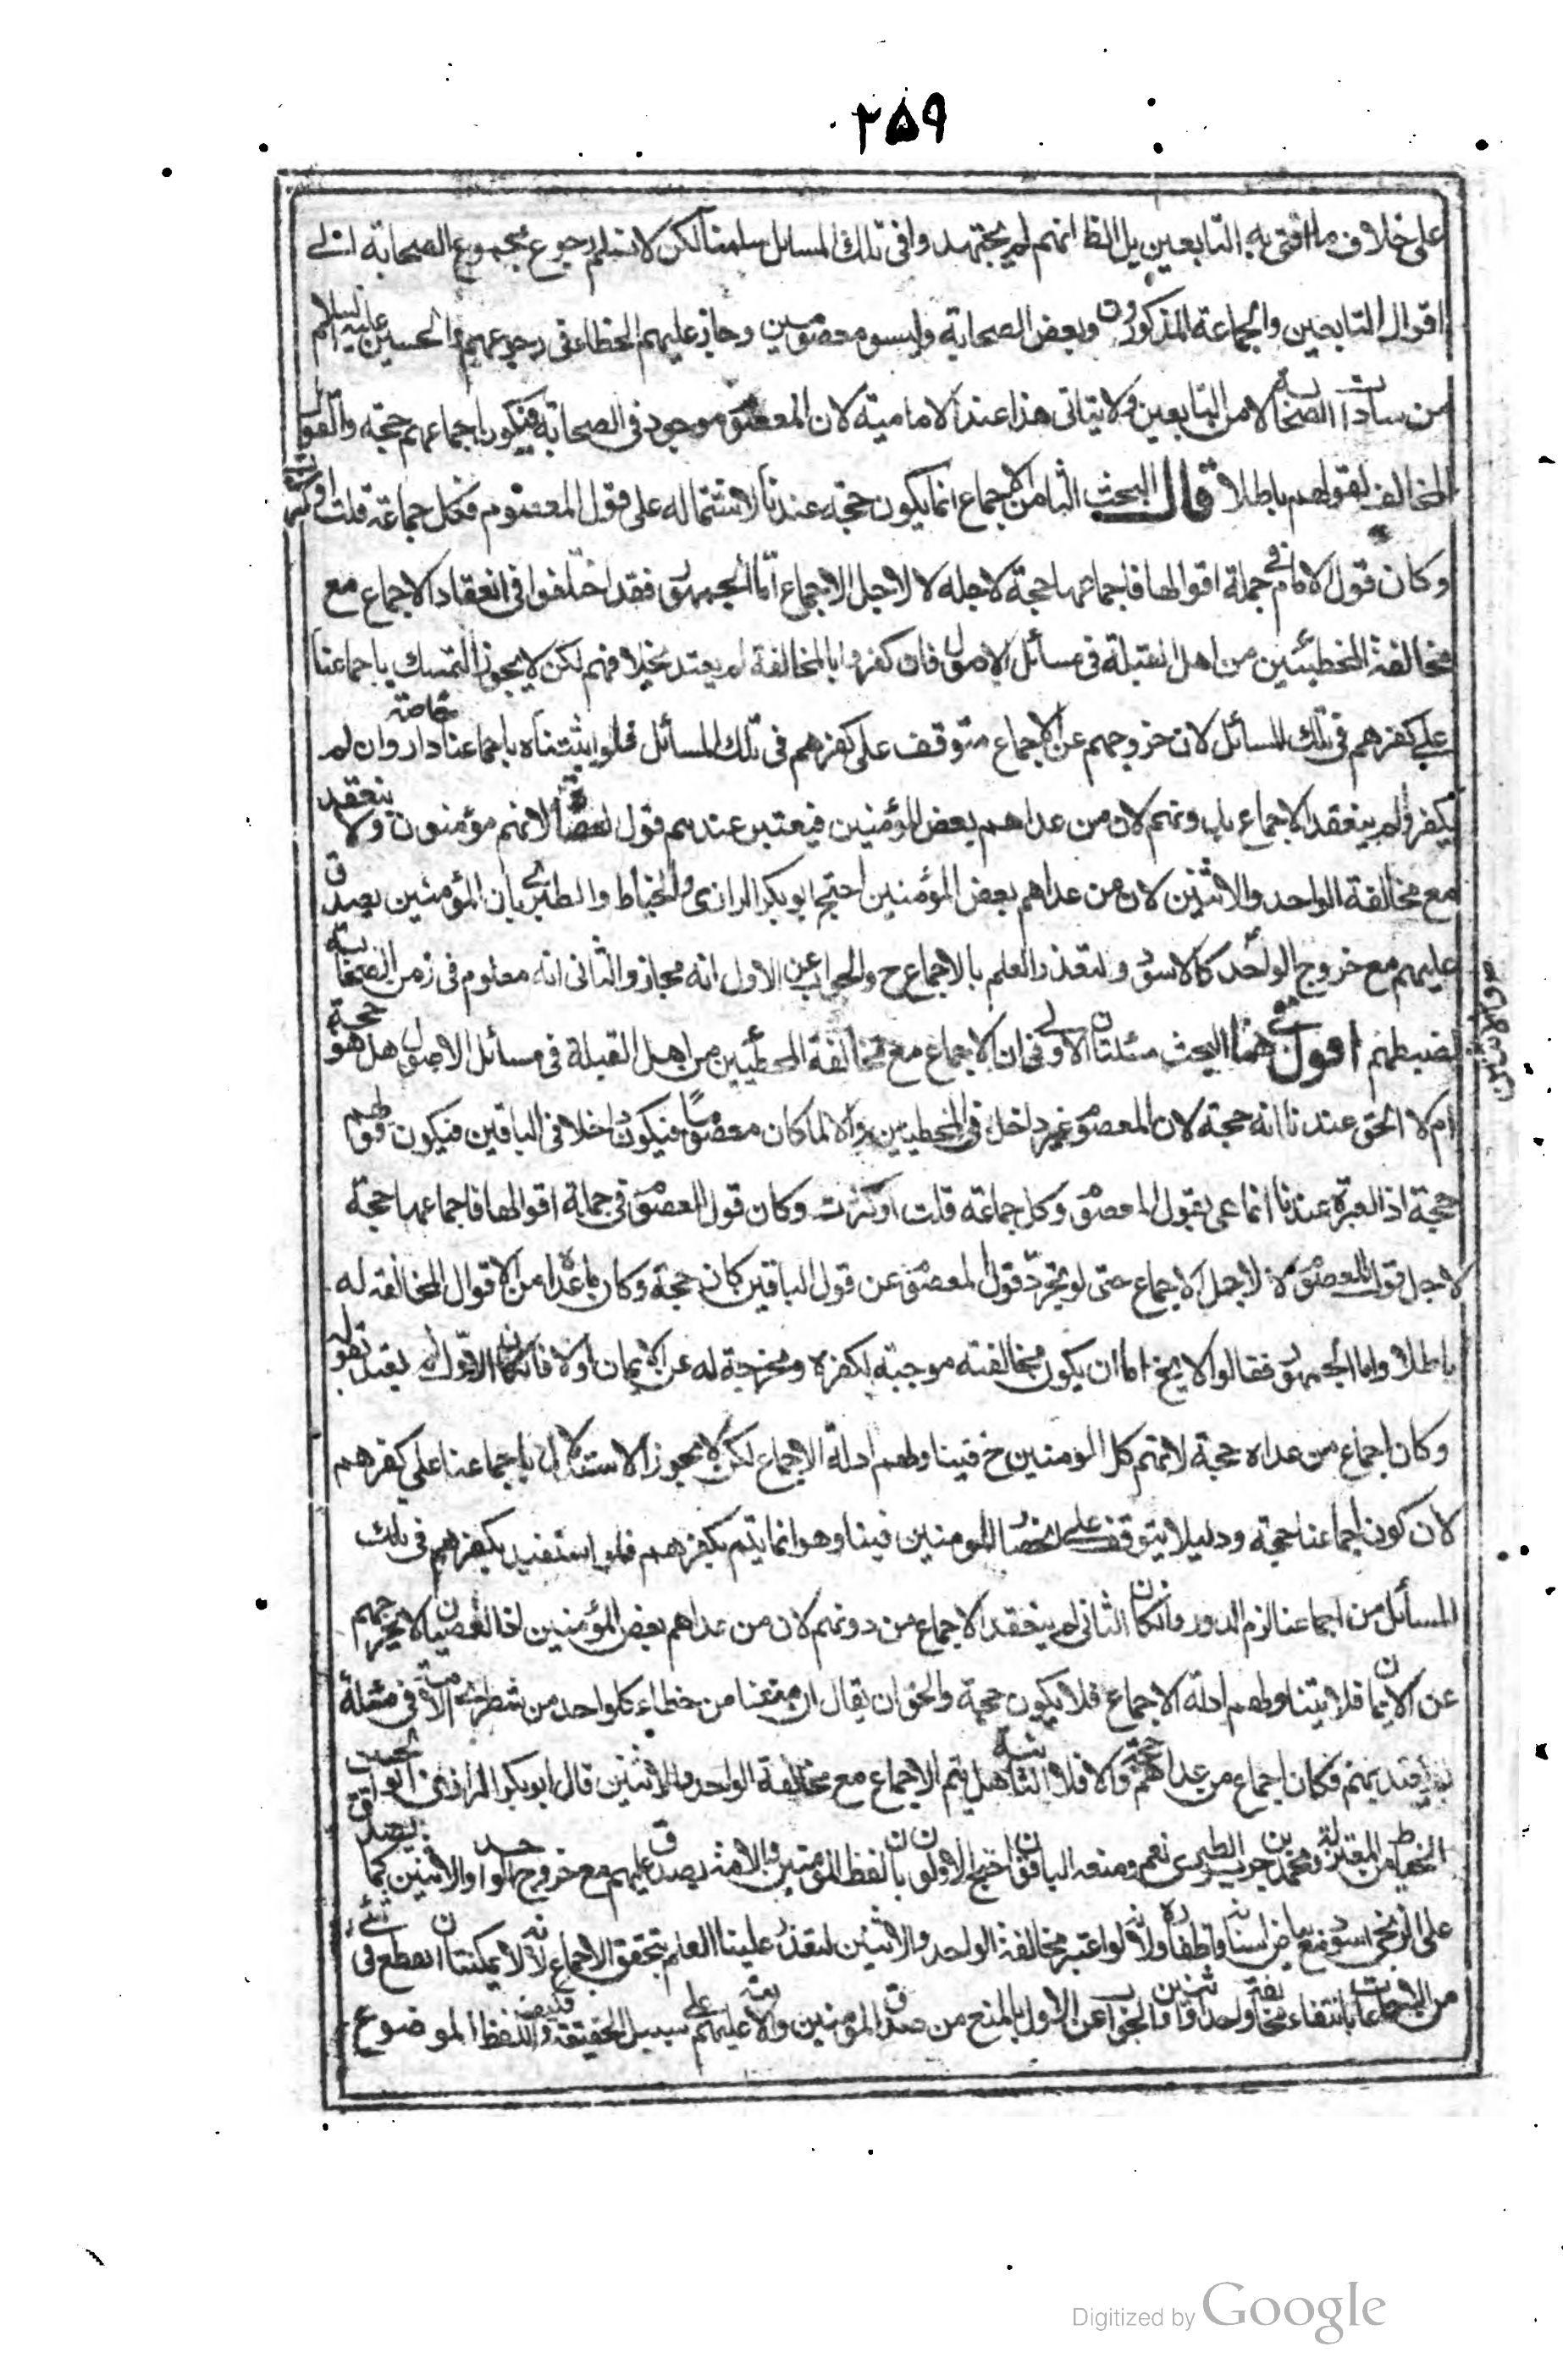 ۲۵۹
على خلاف ما افتى به التابعين بل الظ انهم لم يجتهدوا فى تلك المسائل سلمنا لكن لا نسلم رجوع مجموع الصحابة الى
اقوال التابعين والجماعة المذكورون وبعض الصحابة وليسو معصومين وجاز عليهم الخطاء فى رجوعهم والحسين عليه السلام
من سادات الصحابة لا من التابعين ولا يتاتى هذا عند الامامية لان المعصوم موجود فى الصحابة فيكون اجماعهم حجة والقول
المخالف لقولهم باطلا قال البحث الثامن الاجماع انما يكون حجة عندنا لاشتماله على قول المعصوم فكل جماعة قلت او كثرت
وكان قول الامام فى جملة اقوالها فاجماعها حجة لاجله لا لاجل الاجماع اما الجمهور فقد اختلفوا فى انعقاد الاجماع مع
مخالفة المخطئين من اهل القبلة فى مسائل الاصول فان كفروا بالمخالفة لم يعتد بخلافهم لكن لا يجوز التمسك باجماعنا
على كفرهم فى تلك المسائل لان خروجهم عن الاجماع متوقف على كفرهم فى تلك المسائل فلو اثبتناه باجماعنا خاصة دار وان لم
يكفروا لم ينعقد الاجماع بدونهم لان من عداهم بعض المؤمنين فيعتبر عندهم قول العصاة لانهم مؤمنون ولا ينعقد
مع مخالفة الواحد والاثنين لان من عداهم بعض المؤمنين احتج ابو بكر الرازى والخياط والطبرى بان المؤمنين يصدق
عليهم مع خروج الواحد كالاسود ولتعذر العلم بالاجماع ح والجواب عن الاول انه مجاز والثانى انه معلوم فى زمن الصحابة
لضبطهم اقول فى هذا البحث مسئلتان الاولى فى ان الاجماع مع مخالفة المخطئين من اهل القبلة فى مسائل الاصول هل هو حجة
ام لا الحق عندنا انه حجة لان المعصوم غير داخل فى المخطئين والا لما كان معصوما فيكون داخلا فى الباقين فيكون قولهم
حجة اذ العبرة عندنا انما هى بقول المعصوم وكل جماعة قلت او كثرت وكان قول المعصوم فى جملة اقوالها فاجماعها حجة
لاجل قول المعصوم لا لاجل الاجماع حتى لو تجرد قول المعصوم عن قول الباقين كان حجة وكان ما عداه من الاقوال المخالفه له
باطلا واما الجمهور فقالوا لا يخ اما ان يكون مخالفته موجبة لكفره ومخرجة له عن الايمان او لا فان كان الاول لم يعتد بقوله
وكان اجماع من عداه حجة لانهم كل المومنين ح فيتناولهم ادلة الاجماع لكن لا يجوز الاستدلال باجماعنا على كفرهم
لان كون اجماعنا حجة ودليلا يتوقف على انحصار المومنين فينا وهو انما يتم بكفرهم فلو استفيد بكفرهم فى تلك
المسائل من اجماعنا لزم الدور وان كان الثانى لم ينعقد الاجماع من دونهم لان من عداهم بعض المؤمنين اذ العصيان لا يخرجهم
عن الايمان فلا يتناولهم ادلة الاجماع فلا يكون حجة والحق ان يقال ان منعنا من خطاء كل واحد من شطرى الامة فى مسئلة
لم يعتد بهم فكان اجماع من عداهم حجة والا فلا الثانية هل يتم الاجماع مع مخالفة الواحد والاثنين قال ابو بكر الرازى وابو الحسين
الخياط من المعتزلة ومحمد بن جرير الطبرى نعم ومنعه الباقون احتج الاولون بان لفظ المؤمنين والامة يصدق عليهم مع خروج الواحد والاثنين كما يصدق
على الزنجى اسود مع بياض اسنانه واظفاره ولانه لو اعتبر مخالفة الواحد والاثنين لتعذر علينا العلم بتحقق الاجماع لانه لا يمكننا القطع فى شئ
من الاجماعات بانتفاء مخالفة واحد واثنين والجواب عن الاول بالمنع من صدق المؤمنين والامة عليهم على سبيل الحقيقة واللفظ الموضوع
Digitized by Google